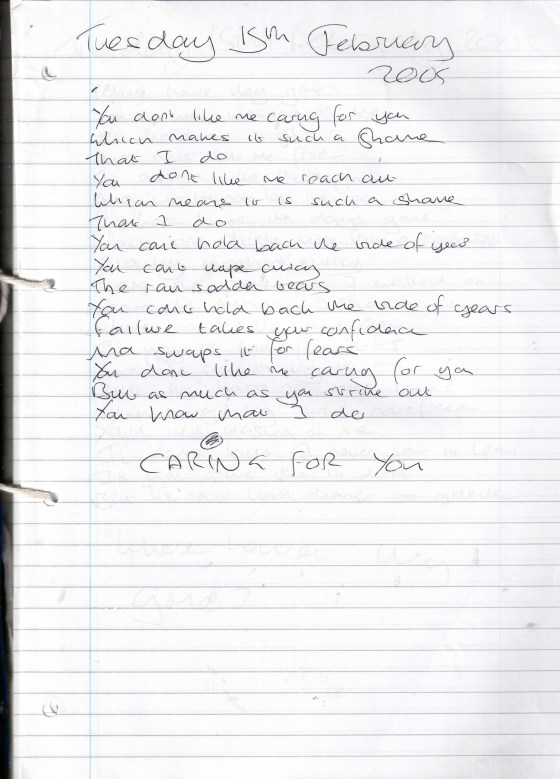 Tuesday 15th February
2005
You dont like me caring for you
Which makes it such a shame
That I do
You dont like me reach out
Which means it is such a shame
That I do
You can't hold back the tide of years
You can't wipe away
The rain sodden tears
You can't hold back the tide of years
Failure takes your confidence
And swaps it for fears
You dont like me caring for you
But as much as you strike out
You know that I do
CARING FOR YOU